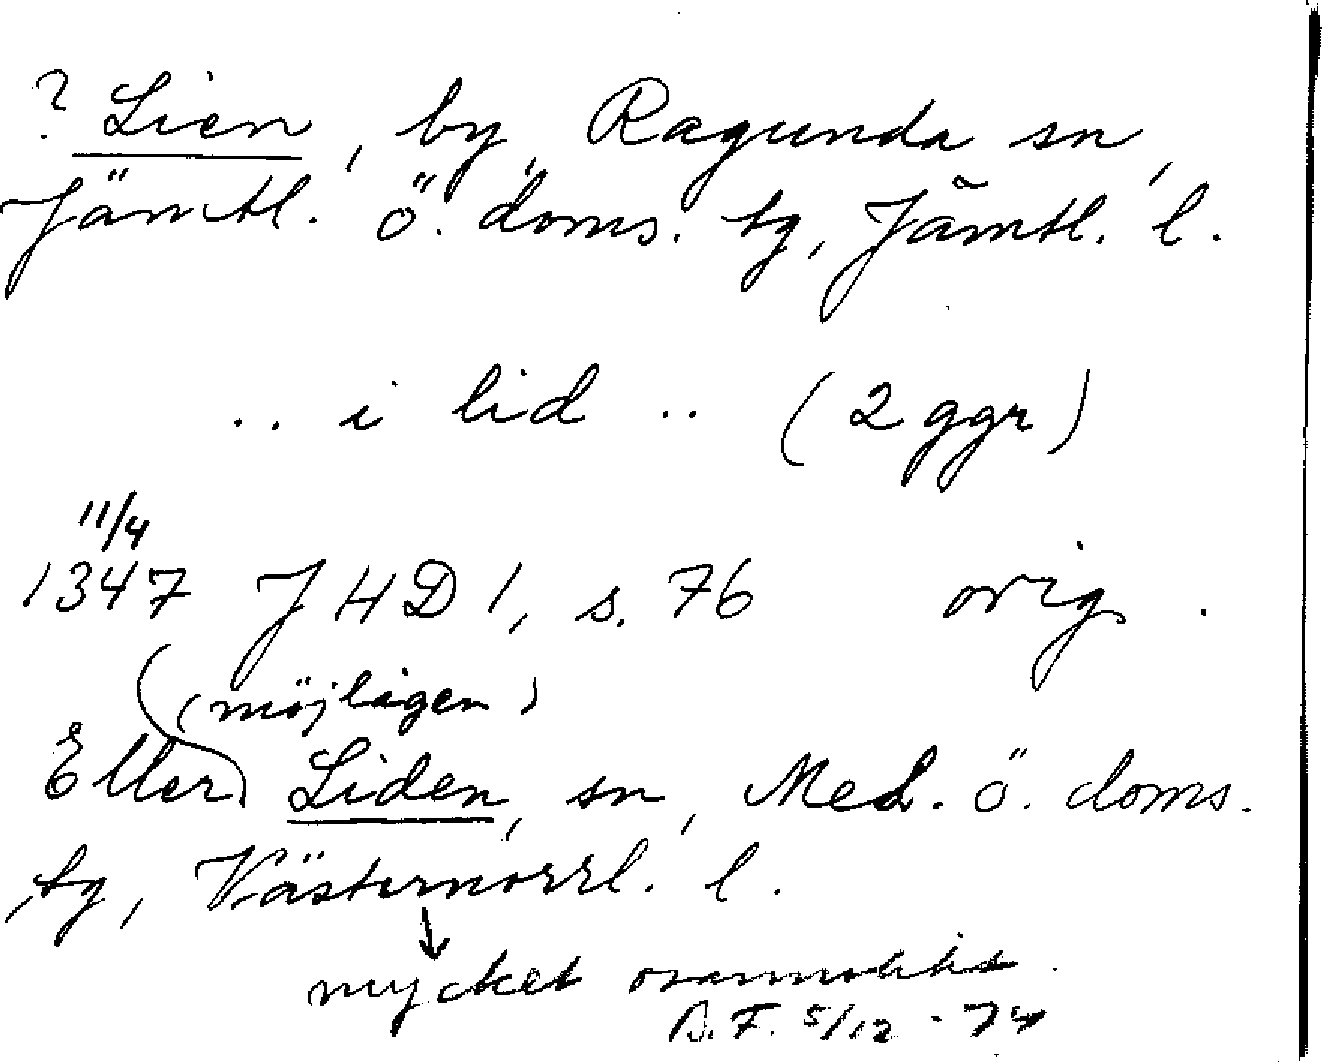 ? Lien, by, Ragunda sn,
Jämtl. ö. doms. tg, Jämtl. l.
.. i lid .. (2 ggr)
11/4
1347 JHD 1, s. 76 orig.
(möjligen)
Eller Liden, sn, Med. ö. doms.
tg, Västernorrl. l.
mycket osannolikt.
B.F. 5/12 - 74